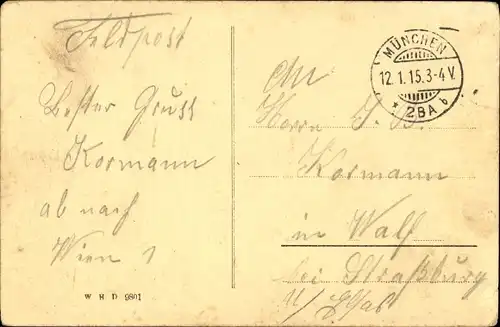 Feldpost
Bester Gruß
Kormann
ab nach
Wien 1
W H D 9801
MÜNCHEN
12.1.15.3-4 V.
* 2BA b
An
Herrn J. B.
Kormann
in Walf
bei Straßburg
i/ Elsaß